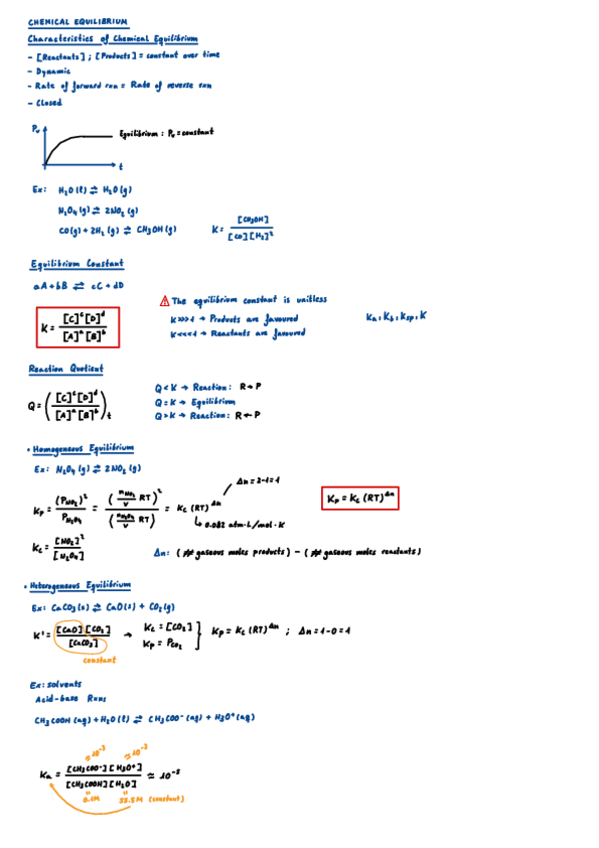 CHEMICAL EQUILIBRIUM
Characteristics of Chemical Equilibrium
- [Reactants] ; [Products] = constant over time
- Dynamic
- Rate of forward rxn = Rate of reverse rxn
- Closed
Pᵥ
Equilibrium : Pᵥ = constant
t
Ex: H₂O (l) ⇌ H₂O (g)
N₂O₄ (g) ⇌ 2NO₂ (g)
CO(g) + 2H₂ (g) ⇌ CH₃OH (g) K = [CH₃OH] / [CO][H₂]²
Equilibrium Constant
aA + bB ⇌ cC + dD
K = [C]ᶜ[D]ᵈ / [A]ᵃ[B]ᵇ
⚠ The equilibrium constant is unitless
K>>>1 → Products are favoured
K<<<1 → Reactants are favoured
Ka, Kb, Ksp, K
Reaction Quotient
Q = ([C]ᶜ[D]ᵈ / [A]ᵃ[B]ᵇ)t
Q < K → Reaction: R → P
Q = K → Equilibrium
Q > K → Reaction: R ← P
• Homogeneous Equilibrium
Ex: N₂O₄ (g) ⇌ 2NO₂ (g)
Δn = 2-1 = 1
Kp = (P NO₂)² / P N₂O₄ = (n NO₂ / V RT)² / (n N₂O₄ / V RT) = Kc (RT)^Δn
↳ 0.082 atm·L/mol·K
Kp = Kc (RT)^Δn
Kc = [NO₂]² / [N₂O₄]
Δn: (## gaseous moles products) - (## gaseous moles reactants)
• Heterogeneous Equilibrium
Ex: CaCO₃(s) ⇌ CaO(s) + CO₂(g)
K' = [CaO][CO₂] / [CaCO₃] → Kc = [CO₂] Kp = P CO₂ } Kp = Kc (RT)^Δn ; Δn = 1-0 = 1
constant
Ex: solvents
Acid-base Rxns
CH₃COOH (aq) + H₂O (l) ⇌ CH₃COO⁻ (aq) + H₃O⁺ (aq)
≈10⁻³ ≈10⁻³
Ka = [CH₃COO⁻][H₃O⁺] / [CH₃COOH][H₂O] ≈ 10⁻⁵
0.1M 55.5M (constant)